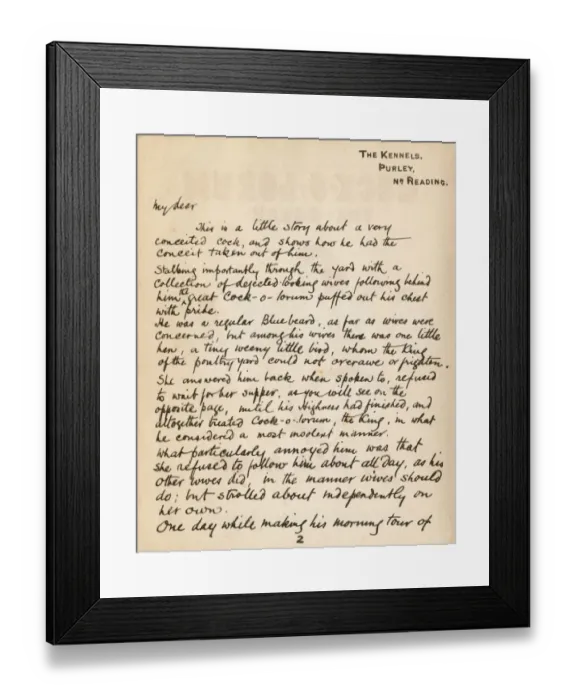 THE KENNELS,
PURLEY,
NR READING.
My dear
This is a little story about a very
conceited cock, and shows how he had the
conceit taken out of him.
Stalking importantly through the yard with a
collection of dejected-looking wives following behind
him, the great Cock-o-lorum puffed out his chest
with pride.
He was a regular Bluebeard, as far as wives were
concerned, but among his wives there was one little
hen, a tiny weeny little bird, whom the King
of the poultry yard could not overawe or frighten.
She answered him back when spoken to, refused
to wait for her supper, as you will see on the
opposite page, until his Highness had finished, and
altogether treated Cock-o-lorum, the King, in what
he considered a most insolent manner.
What particularly annoyed him was that
she refused to follow him about all day, as his
other wives did, in the manner wives should
do; but strolled about independently on
her own.
One day while making his morning tour of
2